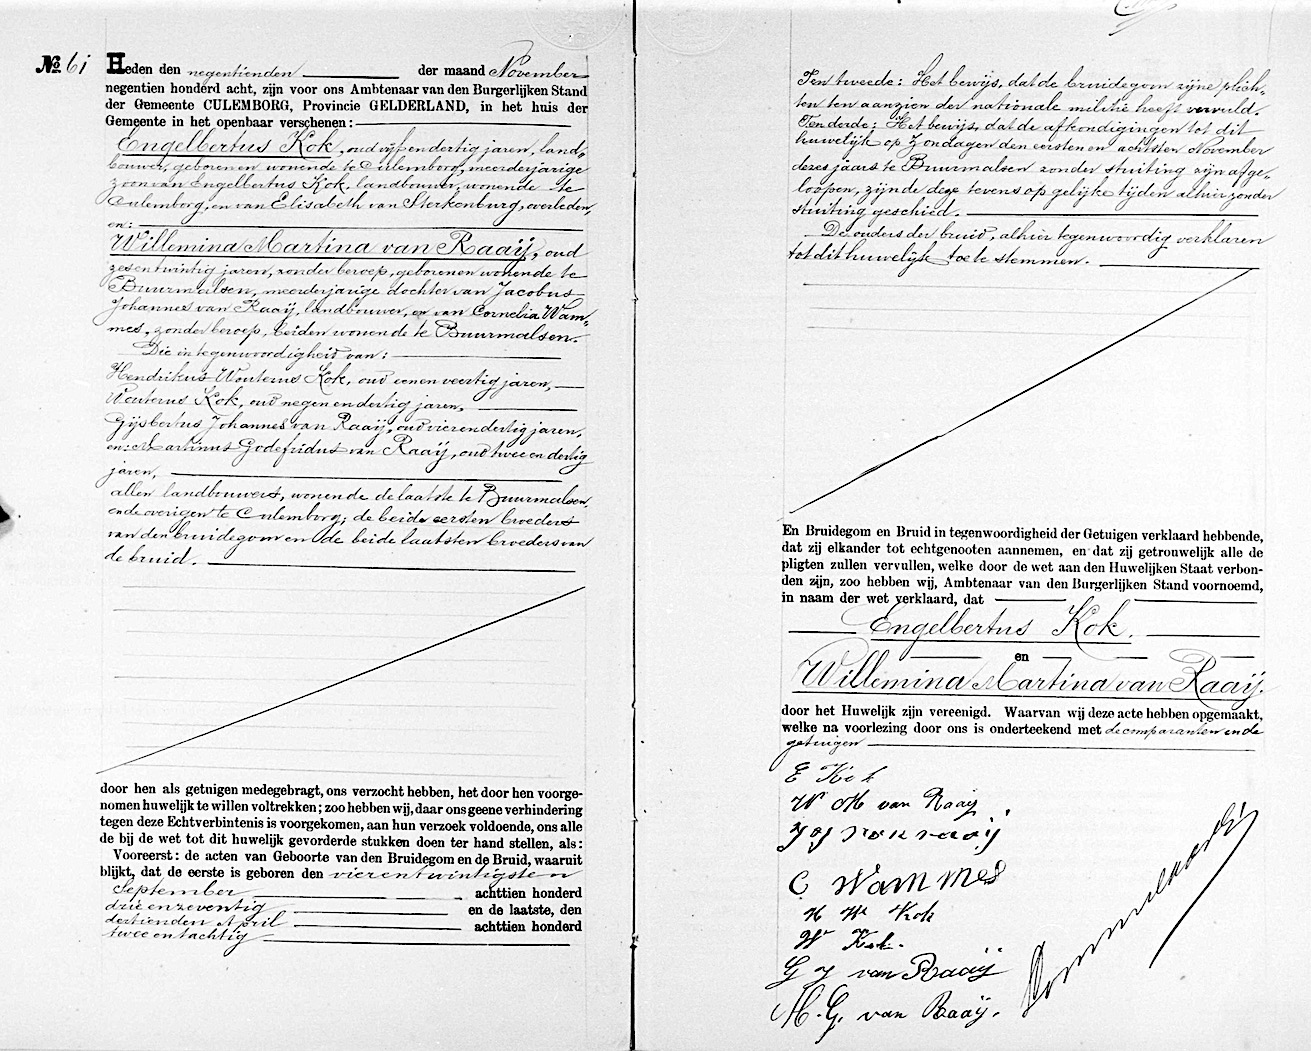 No 61 Heden den negentienden der maand November
negentien honderd acht, zijn voor ons Ambtenaar van den Burgerlijken Stand
der Gemeente CULEMBORG, Provincie GELDERLAND, in het huis der
Gemeente in het openbaar verschenen:
Engelbertus Kok, oud vijf en dertig jaren, land-
bouwer, geboren en wonende te Culemborg, meerderjarige
zoon van Engelbertus Kok, landbouwer, wonende te
Culemborg, en van Elisabeth van Sterkenburg, overleden,
en:
Willemina Martina van Raaij, oud
zes en twintig jaren, zonder beroep, geboren en wonende te
Buurmalsen, meerderjarige dochter van Jacobus
Johannes van Raaij, landbouwer, en van Cornelia Wam-
mes, zonder beroep, beiden wonende te Buurmalsen.
Die in tegenwoordigheid van:
Hendrikus Wouterus Kok, oud een en veertig jaren,
Wouterus Kok, oud negen en dertig jaren,
Gijsbertus Johannes van Raaij, oud vier en dertig jaren,
en: Martinus Godefridus van Raaij, oud twee en dertig
jaren,
allen landbouwers, wonende de laatste te Buurmalsen,
en de overigen te Culemborg; de beide eersten broeders
van den bruidegom en de beide laatsten broeders van
de bruid.
door hen als getuigen medegebragt, ons verzocht hebben, het door hen voorge-
nomen huwelijk te willen voltrekken; zoo hebben wij, daar ons geene verhindering
tegen deze Echtverbintenis is voorgekomen, aan hun verzoek voldoende, ons alle
de bij de wet tot dit huwelijk gevorderde stukken doen ter hand stellen, als:
Vooreerst: de acten van Geboorte van den Bruidegom en de Bruid, waaruit
blijkt, dat de eerste is geboren den vierentwintigsten
September achttien honderd
drie en zeventig en de laatste, den
dertienden April achttien honderd
twee en tachtig
Ten tweede: Het bewijs, dat de bruidegom zijne plich-
ten ten aanzien der nationale militie heeft vervuld.
Ten derde: Het bewijs, dat de afkondigingen tot dit
huwelijk op Zondagen den eersten en achtsten November
dezes jaars te Buurmalsen zonder stuiting zijn afge-
loopen, zijnde deze tevens op gelijke tijden alhier zonder
stuiting geschied.
De ouders der bruid, alhier tegenwoordig verklaren
tot dit huwelijk toe te stemmen.
En Bruidegom en Bruid in tegenwoordigheid der Getuigen verklaard hebbende,
dat zij elkander tot echtgenooten aannemen, en dat zij getrouwelijk alle de
pligten zullen vervullen, welke door de wet aan den Huwelijken Staat verbon-
den zijn, zoo hebben wij, Ambtenaar van den Burgerlijken Stand voornoemd,
in naam der wet verklaard, dat
Engelbertus Kok.
en
Willemina Martina van Raaij.
door het Huwelijk zijn vereenigd. Waarvan wij deze acte hebben opgemaakt,
welke na voorlezing door ons is onderteekend met de comparanten en de
getuigen
E Kok
W M van Raaij
J J van raaij
C Wammes
H W Kok
W Kok.
G J van Raaij
M. G. van Raaij.